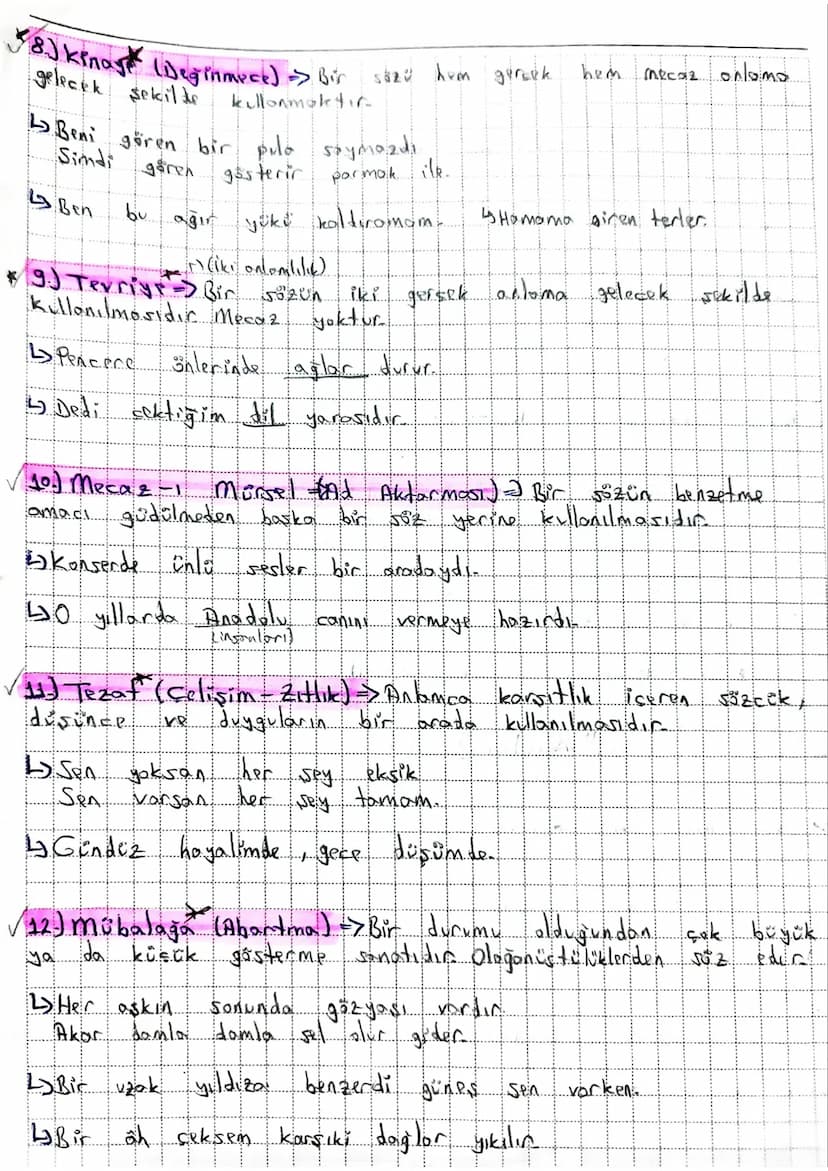 8.) Kinaye (Değinmece) => Bir sözü hem gerçek hem mecaz anlama
gelecek şekilde kullanmaktır.
↳ Beni gören bir pula saymazdı
Şimdi gören gösterir parmak ile.
↳ Ben bu ağır yükü kaldıramam. ↳ Hamama giren terler.
↱ (iki anlamlılık)
9.) Tevriye => Bir sözün iki gerçek anlama gelecek şekilde
kullanılmasıdır. Mecaz yoktur.
↳ Pencere önlerinde ağlar durur.
↳ Dedi çektiğim dil yarasıdır.
10.) Mecaz-ı Mürsel (Ad Aktarması) => Bir sözün benzetme
amacı güdülmeden başka bir söz yerine kullanılmasıdır.
↳ Konserde ünlü sesler bir aradaydı.
↳ O yıllarda Anadolu canını vermeye hazırdı.
(insanları)
11.) Tezat (Çelişim - Zıtlık) => Anlamca karşıtlık içeren sözcük,
düşünce ve duyguların bir arada kullanılmasıdır.
↳ Sen yoksan her şey eksik
Sen varsan her şey tamam.
↳ Gündüz hayalimde, gece düşümde.
12.) Mübalağa (Abartma) => Bir durumu olduğundan çok büyük
ya da küçük gösterme sanatıdır. Olağanüstülüklerden söz edir.
↳ Her aşkın sonunda gözyaşı vardır
Akar damla damla sel olur gider.
↳ Bir uzak yıldıza benzerdi güneş sen varken.
↳ Bir âh çeksem karşıki dağlar yıkılır.